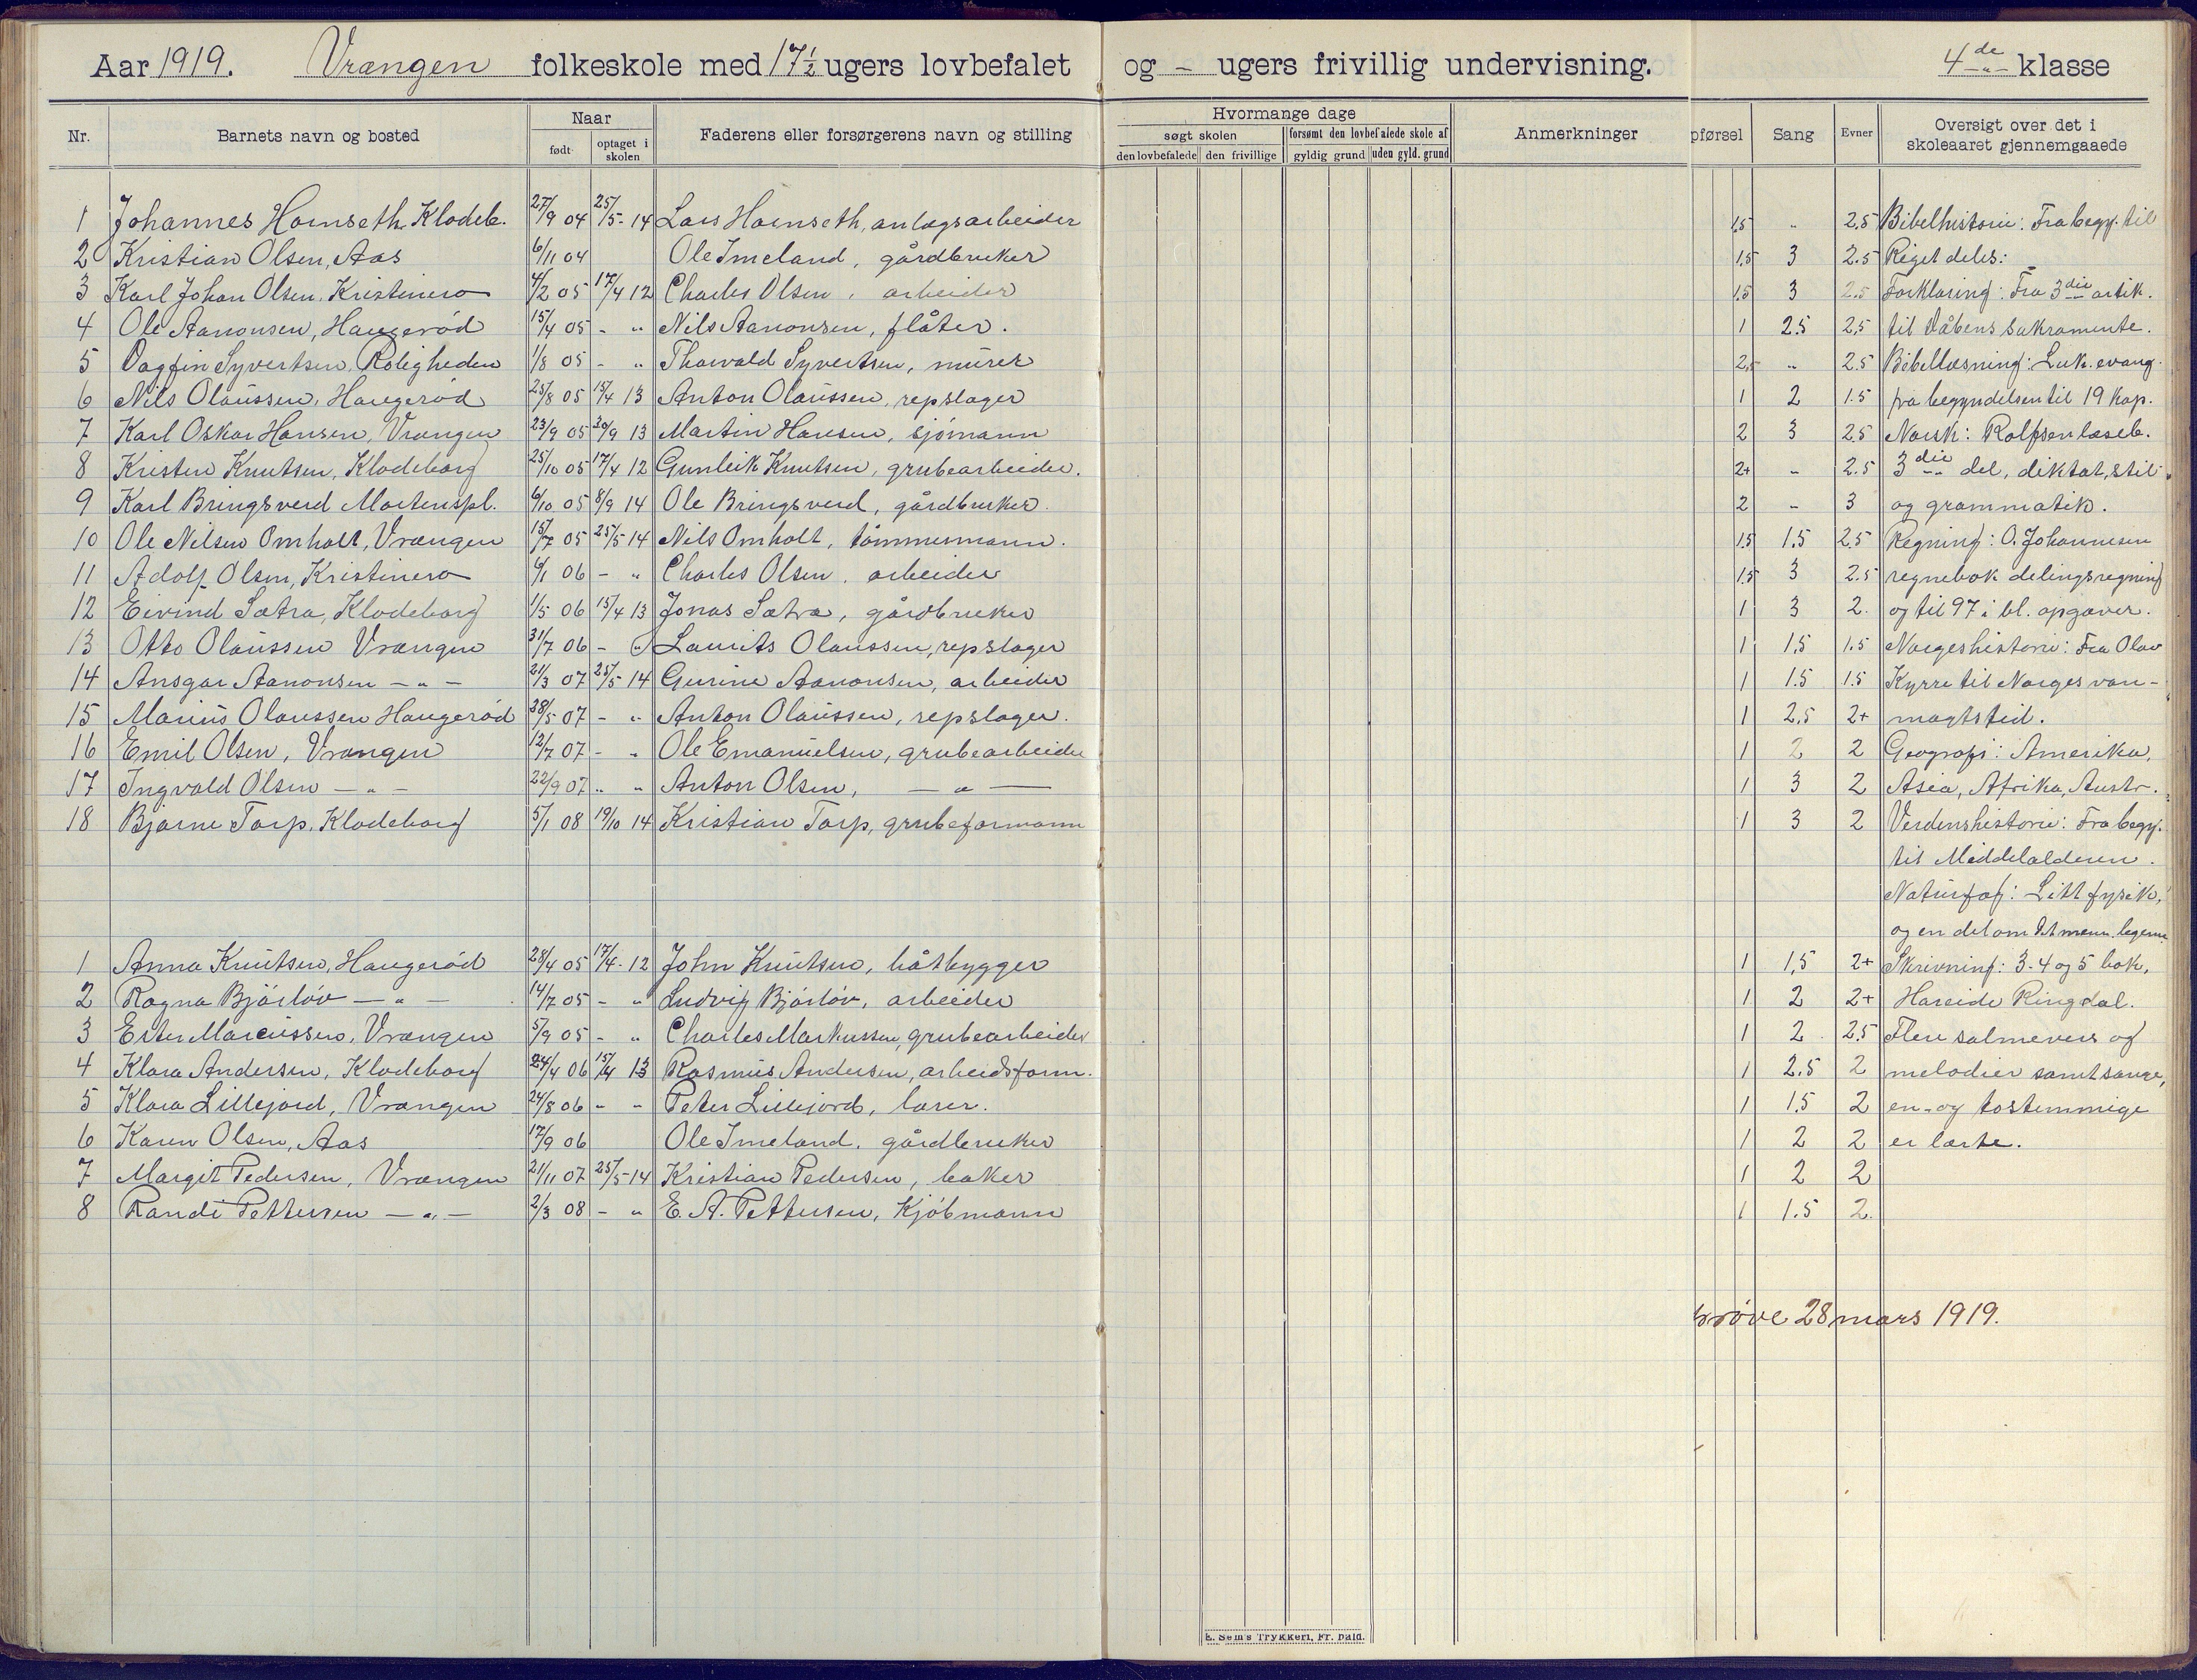 Aar 1919. Vrængen folkeskole med 17½ ugers lovbefalet og - ugers frivillig undervisning. 4de klasse
Nr. Barnets navn og bosted Naar født optaget i skolen Faderens eller forsørgerens navn og stilling Hvormange dage søgt skolen den lovbefalede den frivillige forsømt den lovbefalede skole af gyldig grund uden gyld. grund Anmerkninger pførsel Sang Evner Oversigt over det i skoleaaret gjennemgaaede
1 Johannes Hornseth, Klodeb. 27/9 04 25/5-14 Lars Hornseth, anlægsarbeider 1,5 " 2,5 Bibelhistorie: Fra begy. til
2 Kristian Olsen, Aas 6/11 04 Ole Imeland, gårdbruker 1,5 3 2.5 Riget deles:
3 Karl Johan Olsen, Kristinero 4/2 05 17/4 12 Charles Olsen, arbeider 1.5 3 2.5 Forklaring: Fra 3die artik.
4 Ole Aanonsen, Haugerød 15/4 05 - " Nils Aanonsen, fløter. 1 2.5 2,5 til Dåbens sakramente.
5 Dagfin Syvertsen, Roligheden 1/8 05 - " Thorvald Syvertsen, murer 2,5 " 2.5 Bibellæsning: Luk. evang.
6 Nils Olaussen, Haugerød 25/8 05 15/4 13 Anton Olaussen, repslager 1 2 1.5 fra begyndelsen til 19 kap.
7 Karl Oskar Hansen, Vrængen 23/9 05 20/9 13 Martin Hansen, sjømann 2 3 2.5 Norsk: Rolfsen læseb.
8 Kristen Knutsen, Klodeborg 25/10 05 17/4 12 Gunleik Knutsen, grubearbeider. 2+ " 2.5 3die del, diktat, stil
9 Karl Bringsverd Mortenspl. 6/10 05 8/9 14 Ole Bringsverd, gårdbruker. 2 - 3 og grammatik.
10 Ole Nilsen Omholt, Vrængen 15/7 05 25/5 14 Nils Omholt, tømmermann. 1,5 1.5 2,5 Regning: O. Johannesen
11 Adolf Olsen, Kristinero 6/1 06 - " Charles Olsen, arbeider 1.5 3 2.5 regnebok delingsregning
12 Eivind Sætra, Klodeborg 1/5 06 15/4 13 Jonas Sætra, gårdbruker 1 3 2. og til 97 i bl. opgaver.
13 Otto Olaussen Vrængen 31/7 06 - " Laurits Olaussen, repslager 1 1,5 1.5 Norgeshistorie: Fra Olav
14 Ansgar Aanonsen - " - 21/3 07 25/5 14 Gurine Aanonsen, arbeider 1 1.5 1.5 Kyrre til Norges van-
15 Marius Olaussen Haugerød 28/5 07 - " Anton Olaussen, repslager. 1 2,5 2+ magtstid.
16 Emil Olsen, Vrængen 12/7 07 - " Ole Emanuelsen, grubearbeider 1 2 2 Geografi: Amerika,
17 Ingvald Olsen - " - 22/9 07 " " Anton Olsen, - " - 1 3 2 Asia, Afrika, Austr.
18 Bjarne Torp, Klodeborg 5/1 08 19/10 14 Kristian Torp, grubeformann 1 3 2 Verdenshistorie: Fra begy.
til Middelalderen.
Naturfag: Litt fysik,
og en del om det menn. legeme
1 Anna Knutsen, Haugerød 28/4 05 17/4-12 John Knutsen, båtbygger 1 1,5 2+ Skrivning: 3-4 og 5 bok,
2 Ragna Bjørløv - " - 14/7 05 - " Ludvig Bjørløv, arbeider 1 2 2+ Hareide Ringdal.
3 Ester Marcussen, Vrængen 5/9 05 - " Charles Markussen, grubearbeider 1 2 2.5 Flere salmevers og
4 Klara Andersen, Klodeborg 24/4 06 15/4 13 Rasmus Andersen, arbeidsform. 1 2.5 2 melodier samt sange,
5 Klara Lillejord, Vrængen 24/8 06 - - Peter Lillejord, lærer. 1 1.5 2 en- og tostemmige
6 Karen Olsen, Aas 17/9 06 Ole Imeland, gårdbruker 1 2 2 er lærte.
7 Margit Pedersen, Vrængen 21/11 07 25/5-14 Kristian Pedersen, baker 1 2 2
8 Randi Pettersen - " - 2/3 08 - " E. A. Pettersen, Kjøbmann 1 1.5 2.
prøve 28 mars 1919.
E. Sem's Trykkeri, Fr. hald.